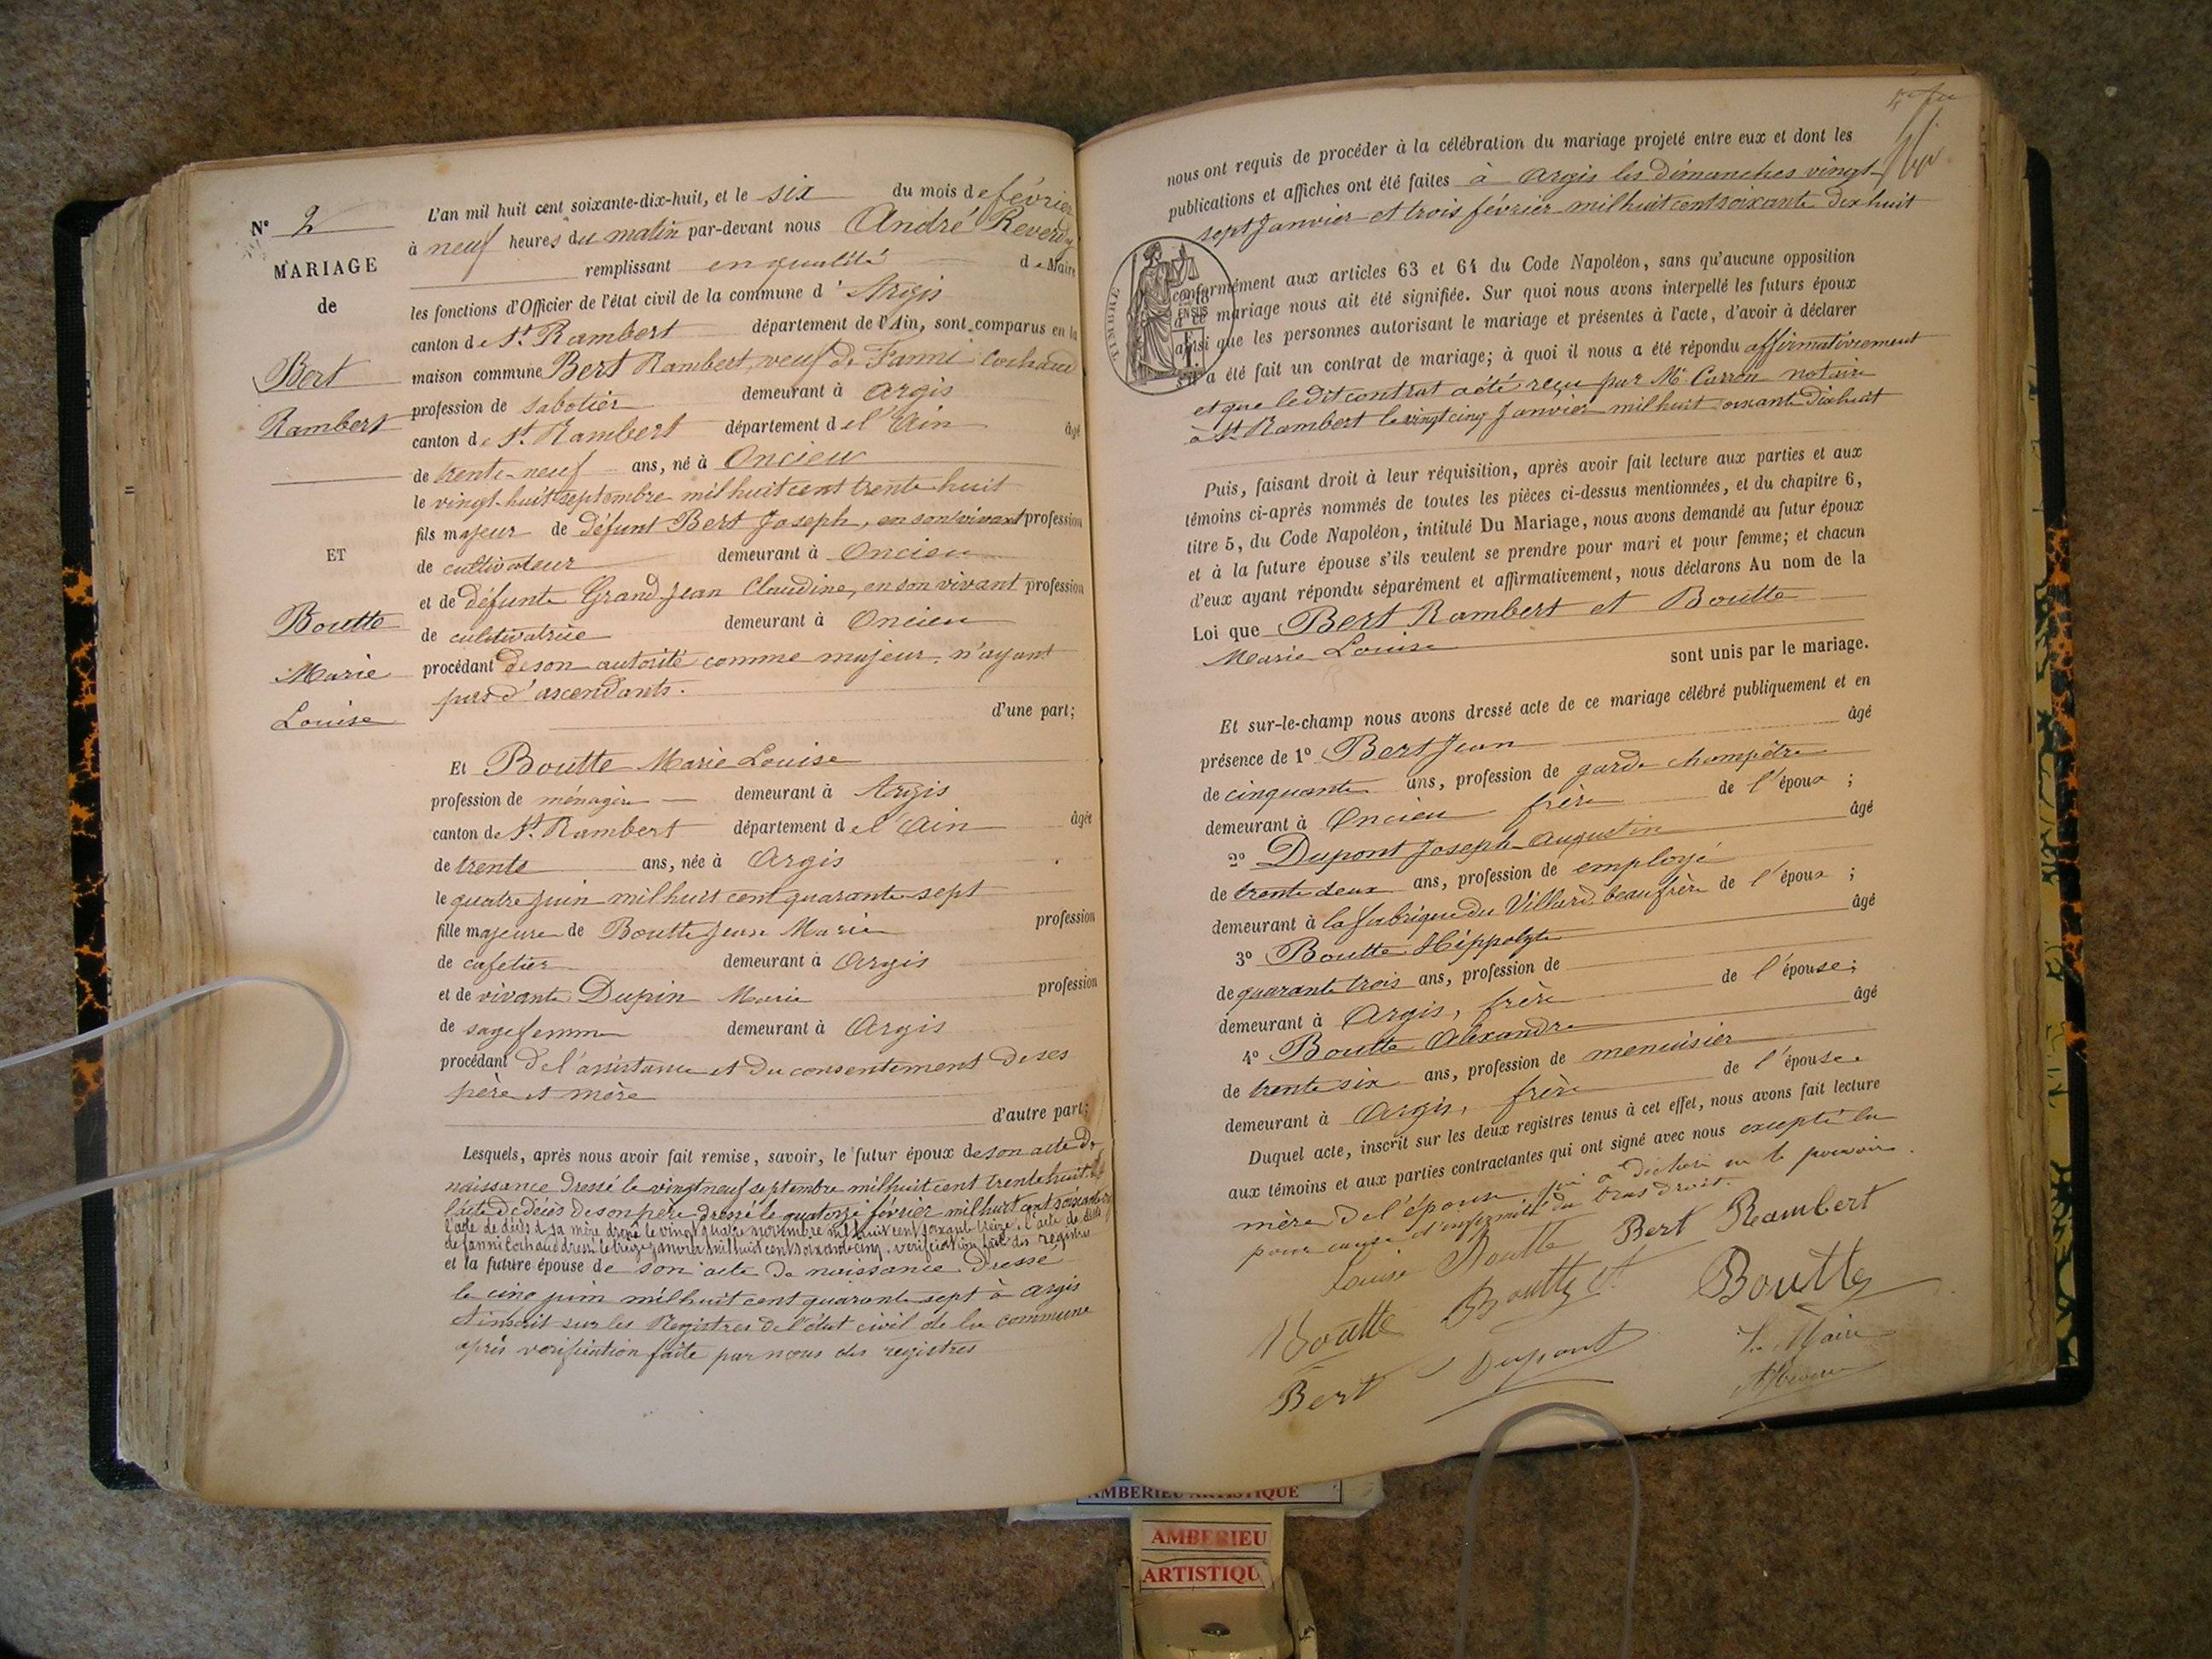 N° 2
MARIAGE
de
Bert
Rambert
ET
Boutte
Marie
Louise
L'an mil huit cent soixante-dix-huit, et le six du mois de février
à neuf heures du matin par-devant nous André Reverdy
remplissant en qualité de Maire
les fonctions d'Officier de l'état civil de la commune d'Argis
canton de St. Rambert département de l'Ain, sont comparus en la
maison commune Bert Rambert, veuf de Fanni Cochaud
profession de sabotier demeurant à Argis
canton de St. Rambert département de l'Ain âgé
de trente-neuf ans, né à Oncieu
le vingt-huit septembre mil huit cent trente huit
fils majeur de défunt Bert Joseph, en son vivant profession
de cultivateur demeurant à Oncieu
et de défunte Grand-Jean Claudine, en son vivant profession
de cultivatrice demeurant à Oncieu
procédant de son autorité comme majeur, n'ayant
pas d'ascendants.
d'une part;
Et Boutte Marie Louise
profession de ménagère demeurant à Argis
canton de St. Rambert département de l'Ain âgée
de trente ans, née à Argis
le quatre juin mil huit cent quarante-sept
fille majeure de Boutte Jean Marie profession
de cafetier demeurant à Argis
et de vivante Dupin Marie profession
de sage femme demeurant à Argis
procédant de l'assistance et du consentement de ses
père et mère
d'autre part;
Lesquels, après nous avoir fait remise, savoir, le futur époux de son acte de
naissance dressé le vingt neuf septembre mil huit cent trente huit,
l'acte de décès de son père dressé le quatorze février mil huit cent soixante
l'acte de décès de sa mère dressé le vingt quatre novembre mil huit cent soixante treize, l'acte de décès
de fanni Cochaud dressé le treize janvier mil huit cent soixante cinq. vérification faite des registres
et la future épouse de son acte de naissance dressé
le cinq juin mil huit cent quarante sept à Argis
et inscrit sur les Registres de l'état civil de la commune
après vérification faite par nous des registres
nous ont requis de procéder à la célébration du mariage projeté entre eux et dont les
publications et affiches ont été faites à Argis les dimanches vingt-
sept Janvier et trois février mil huit cent soixante dix huit
TIMBRE
conformément aux articles 63 et 64 du Code Napoléon, sans qu'aucune opposition
à ce mariage nous ait été signifiée. Sur quoi nous avons interpellé les futurs époux
ainsi que les personnes autorisant le mariage et présentes à l'acte, d'avoir à déclarer
s'il a été fait un contrat de mariage; à quoi il nous a été répondu affirmativement
et que le dit contrat a été reçu par Me Carron notaire
à St Rambert le vingt cinq Janvier mil huit soixante Dix huit
Puis, faisant droit à leur réquisition, après avoir fait lecture aux parties et aux
témoins ci-après nommés de toutes les pièces ci-dessus mentionnées, et du chapitre 6,
titre 5, du Code Napoléon, intitulé Du Mariage, nous avons demandé au futur époux
et à la future épouse s'ils veulent se prendre pour mari et pour femme; et chacun
d'eux ayant répondu séparément et affirmativement, nous déclarons Au nom de la
Loi que Bert Rambert et Boutte
Marie Louise sont unis par le mariage.
Et sur-le-champ nous avons dressé acte de ce mariage célébré publiquement et en
présence de 1° Bert Jean âgé
de cinquante ans, profession de garde champêtre
demeurant à Oncieu frère de l'époux ;
2° Dupont Joseph Augustin âgé
de trente deux ans, profession de employé
demeurant à la fabrique du Villard beau frère de l'époux ;
3° Boutte Hippolyte âgé
de quarante trois ans, profession de
demeurant à Argis, frère de l'épouse;
4° Boutte Alexandre âgé
de trente six ans, profession de menuisier
demeurant à Argis, frère de l'épouse.
Duquel acte, inscrit sur les deux registres tenus à cet effet, nous avons fait lecture
aux témoins et aux parties contractantes qui ont signé avec nous excepté la
mère de l'épouse qui a déclaré ne le pouvoir
pour cause d'infirmité du bras droit.
Louise Boutte Bert Rambert
Boutte Boutte Boutte
Bert Dupont Le Maire
AMBERIEU ARTISTIQUE
AMBERIEU
ARTISTIQU